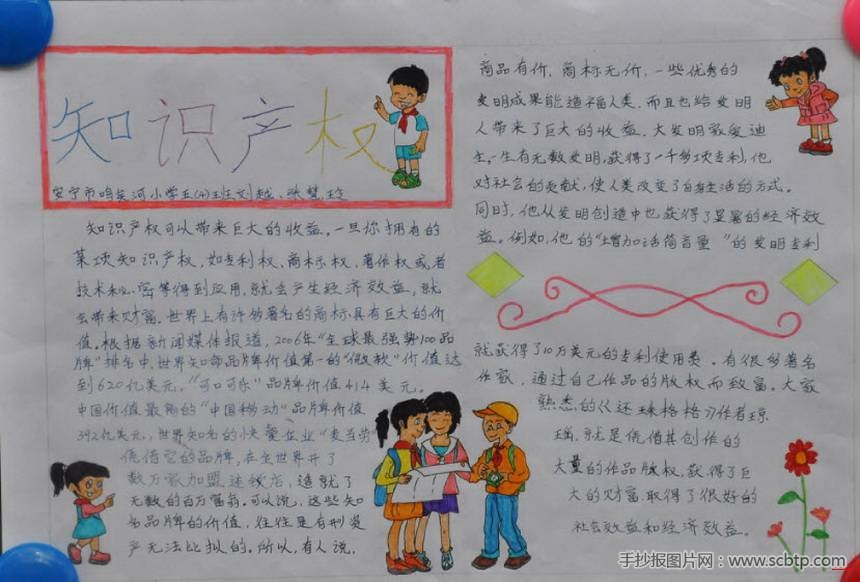 知识产权
安宁市鸣矣河小学五(4)班刘越、张慧玲
知识产权可以带来巨大的收益。一旦你拥有的
某项知识产权,如专利权、商标权、著作权或者
技术秘密等得到应用,就会产生经济效益,就
会带来财富。世界上有许多著名的商标具有巨大的价
值。根据新闻媒体报道,2006年“全球最强势100品
牌”排名中,世界知命品牌价值第一的“微软”价值达
到620亿美元,“可口可乐”品牌价值414美元。
中国价值最高的“中国移动”品牌价值
392亿美元,世界知名的快餐企业“麦当劳”
凭借它的品牌,在全世界开了
数万家加盟连锁店,造就了
无数的百万富翁。可以说,这些知
名品牌的价值,往往是有形资
产无法比拟的。所以,有人说,
商品有价,商标无价,一些优秀的
发明成果能造福人类,而且也给发明
人带来了巨大的收益。大发明家爱迪
生,一生有无数发明,获得了一千多项专利,他
对社会的贡献,使人类改变了自身生活的方式。
同时,他从发明创造中也获得了显著的经济效
益。例如,他的“增加话筒音量”的发明专利
就获得了10万美元的专利使用类。有很多著名
作家,通过自己作品的版权而致富。大家
熟悉的《还珠格格》作者琼
瑶,就是凭借其创作的
大量的作品版权,获得了巨
大的财富,取得了很好的
社会效益和经济效益。
手抄报图片网:www.scbtp.com